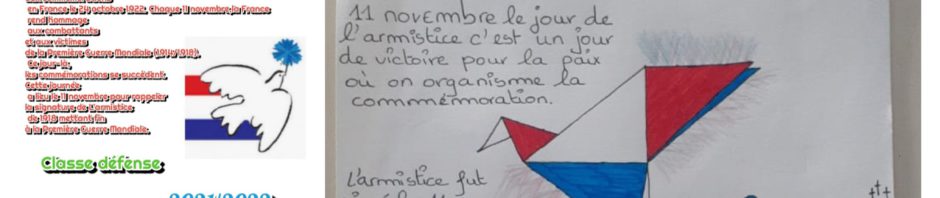 en France le 24 octobre 1922. Chaque 11 novembre,la France
rend hommage
aux combattants
et aux victimes
de la Première Guerre Mondiale (1914-1918).
Ce jour-là,
les commémorations se succèdent.
Cette journée
a lieu le 11 novembre pour rappeler
la signature de L'armistice
de 1918 mettant fin
à la Première Guerre Mondiale.
Classe défense
2021/2022
11 novembre le jour de
l'armistice c'est un jour
de victoire pour la paix
où on organisme la
commmémoration.
L'armistice fut